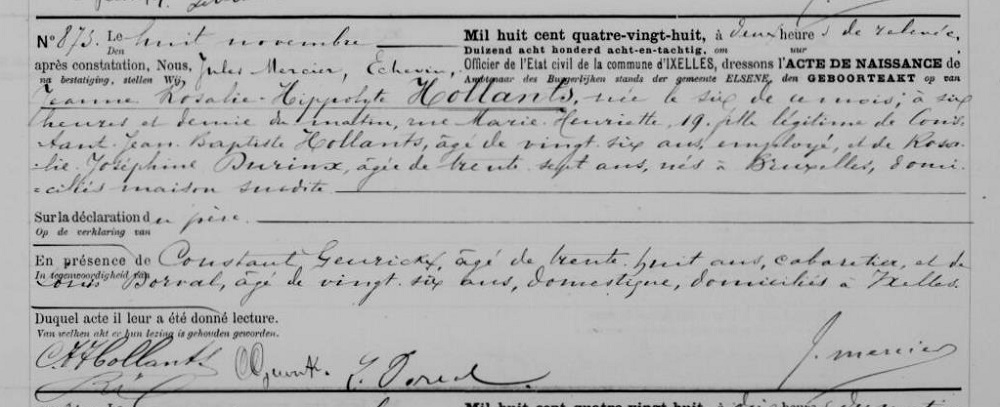 N° 873. Le huit novembre Mil huit cent quatre-vingt-huit, à deux heures de relevée,
Den Duizend acht honderd acht-en-tachtig, om uur
après constatation, Nous, Jules Mercier, Echevin, Officier de l'Etat civil de la commune d'IXELLES, dressons l'ACTE DE NAISSANCE de
na bestatiging, stellen Wij, Ambtenaar des Burgerlijken stands der gemeente ELSENE, den GEBOORTEAKT op van
Jeanne Rosalie Hippolyte Hollants, née le six de ce mois, à six
heures et demie du matin, rue Marie-Henriette, 19, fille légitime de Cons-
tant Jean Baptiste Hollants, âgé de vingt-six ans, employé, et de Rosa-
lie Joséphine Durinx, âgée de trente sept ans, nés à Bruxelles, domi-
ciliés maison susdite
Sur la déclaration du père.
Op de verklaring van
En présence de Constant Geurickx, âgé de trente-huit ans, cabaretier, et de
In tegenwoordigheid van
Louis Dorval, âgé de vingt-six ans, domestique, domiciliés à Ixelles.
Duquel acte il leur a été donné lecture.
Van welken akt er hun lezing is gehouden geworden.
Hollants
J. Mercier
Mil huit cent quatre-vingt-huit, à